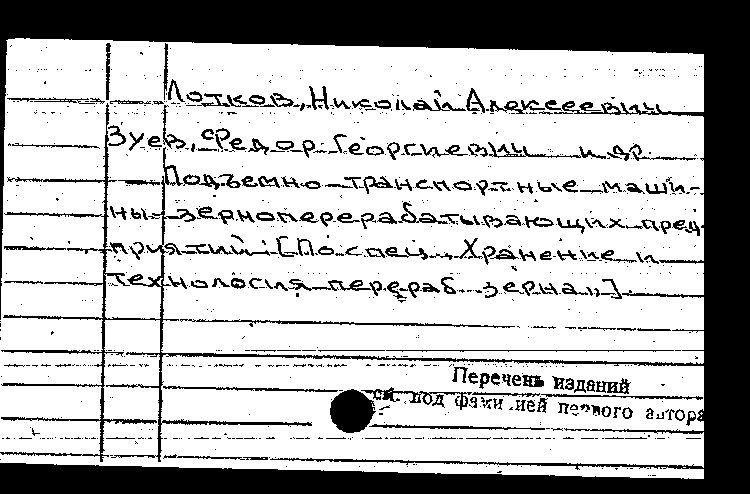 Лотков, Николай Алексеевич
Зуев, Федор Георгиевич и др.
Подъемно-транспортные маши-
ны зерноперерабатывающих пред-
приятий: [По спец. „Хранение и
технология перераб. зерна“].
Перечень изданий
см. под фамилией первого автора